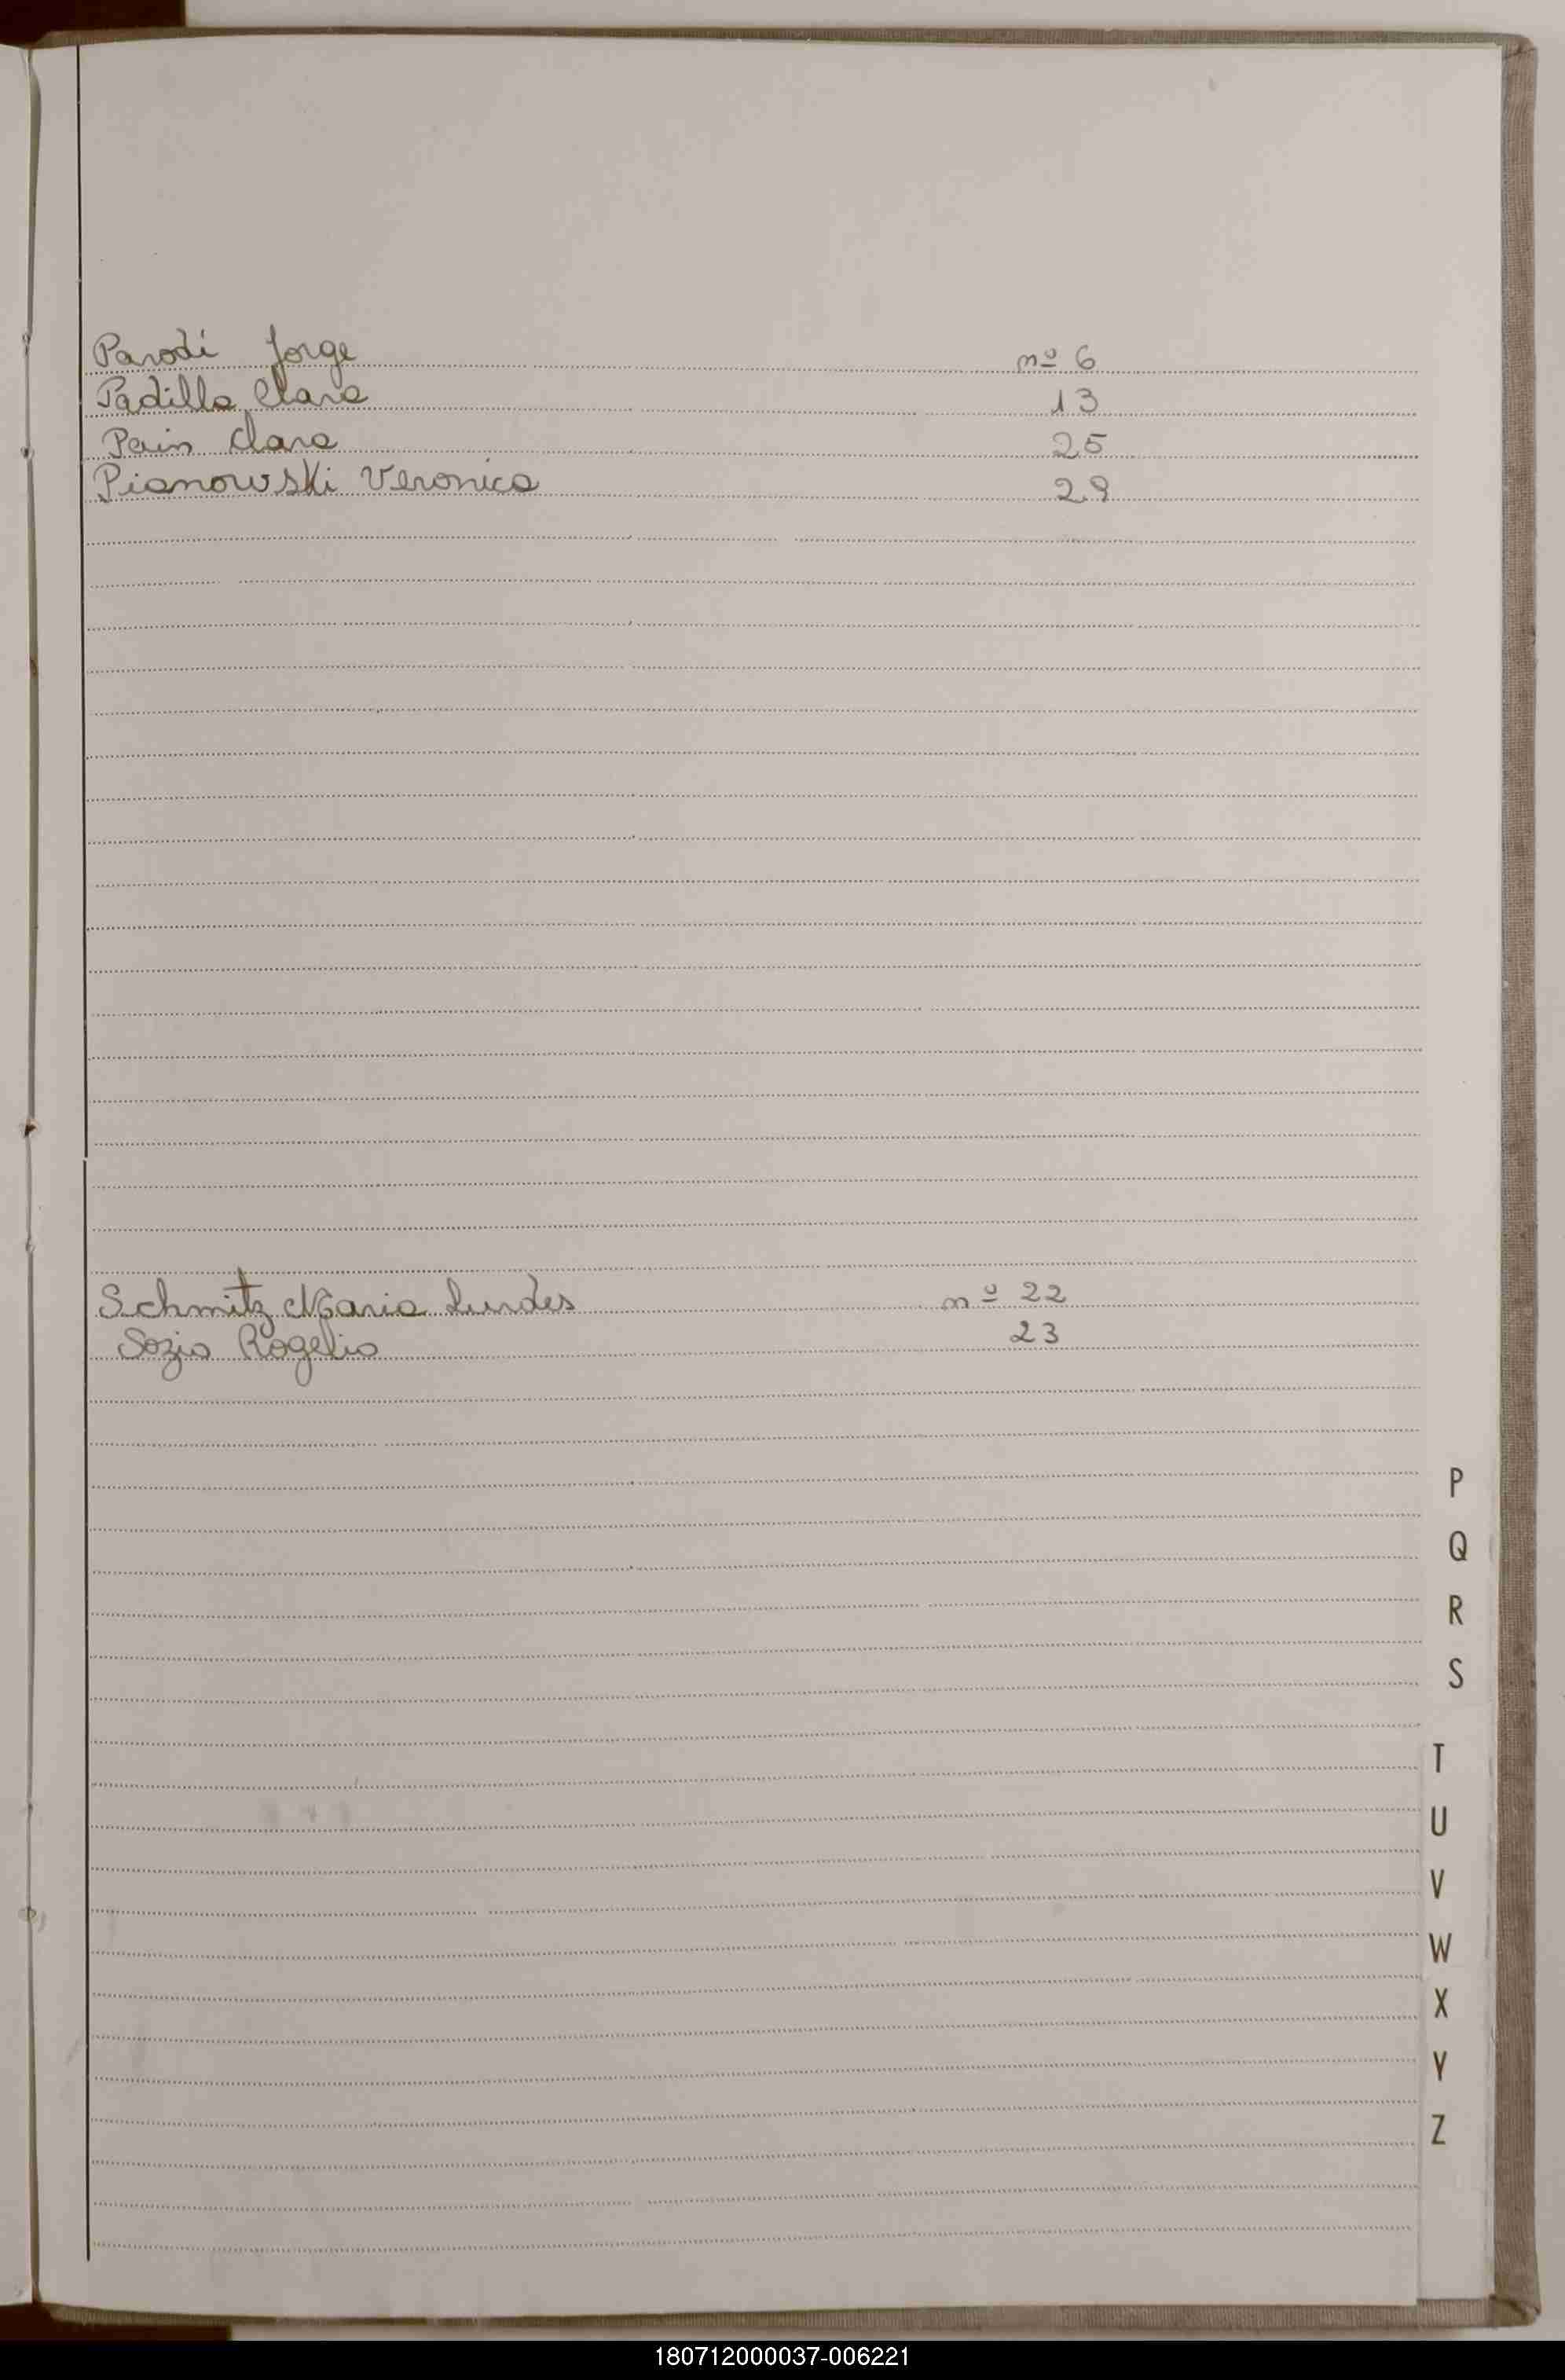 Parodi Jorge nº 6
Padilla Clara 13
Pain Clara 25
Pianowski Veronica 29
Schmitz Maria Lurdes nº 22
Sozio Rogelio 23
P
Q
R
S
T
U
V
W
X
Y
Z
180712000037-006221